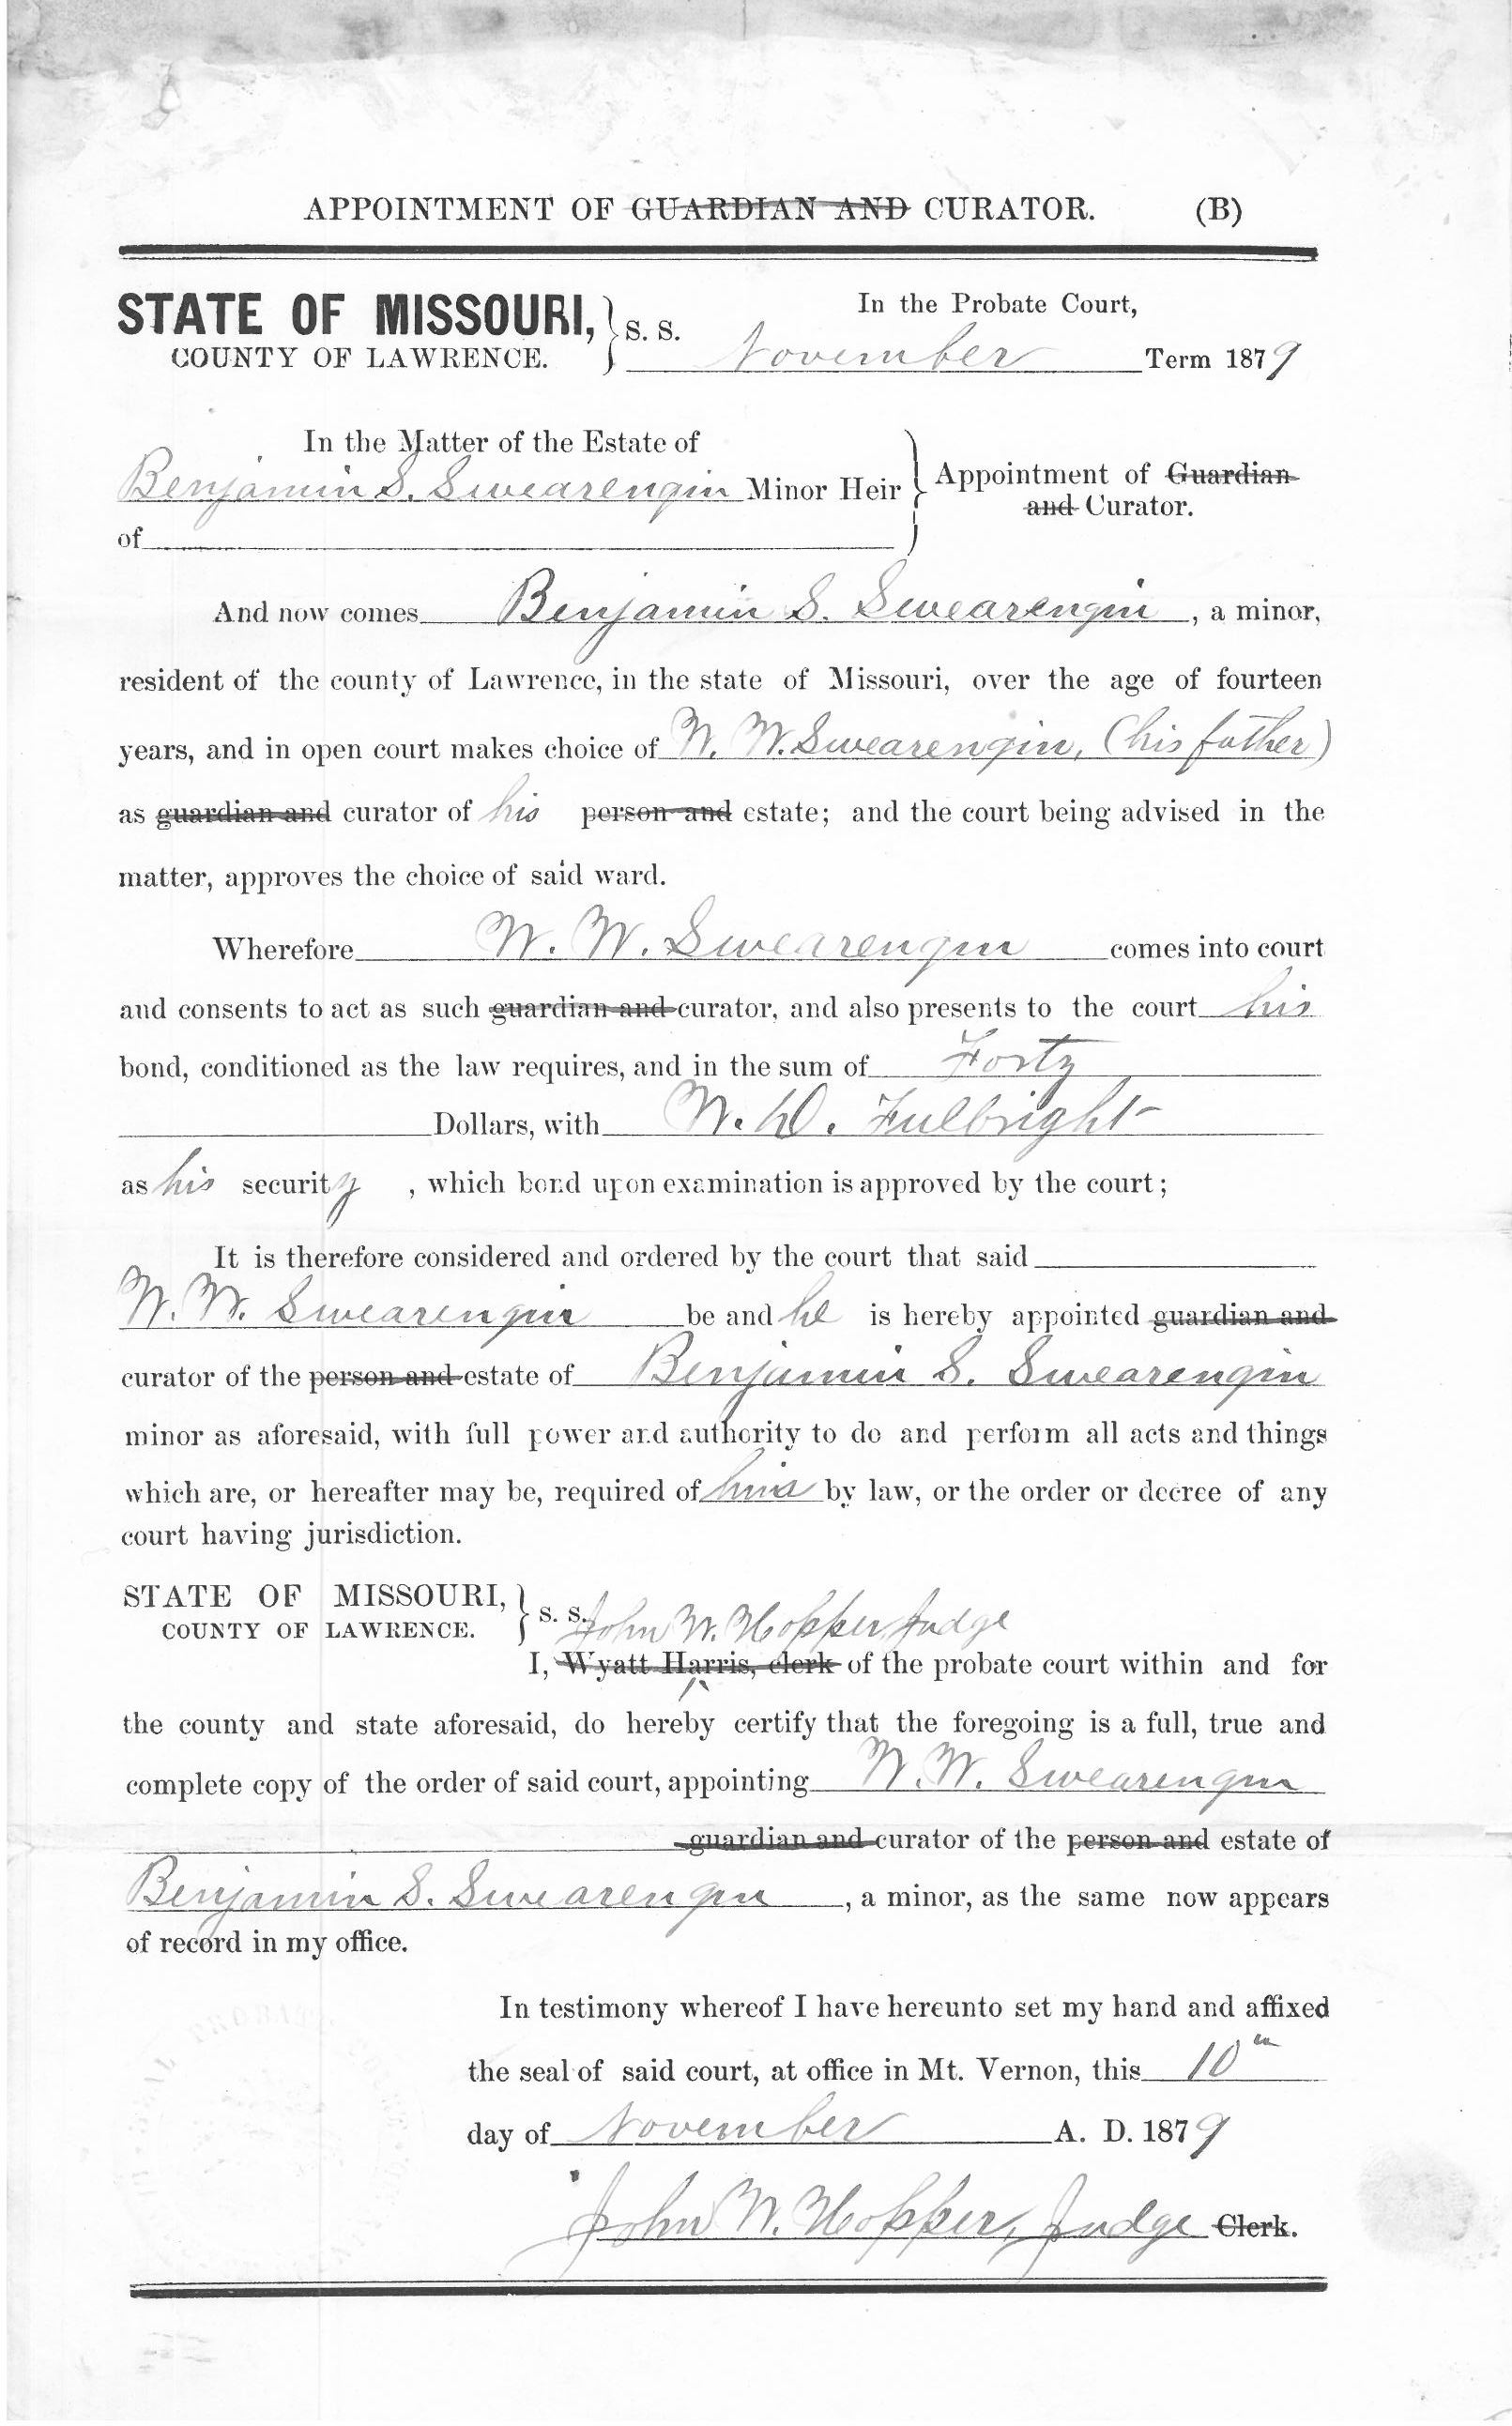 APPOINTMENT OF GUARDIAN AND CURATOR. (B)
STATE OF MISSOURI, COUNTY OF LAWRENCE. } S. S.
In the Probate Court,
November Term 1879
In the Matter of the Estate of
Benjamin S. Swearengin Minor Heir
of
Appointment of Guardian
and Curator.
And now comes Benjamin S. Swearengin, a minor,
resident of the county of Lawrence, in the state of Missouri, over the age of fourteen
years, and in open court makes choice of W. W. Swearengin, (his father)
as guardian and curator of his person and estate; and the court being advised in the
matter, approves the choice of said ward.
Wherefore W. W. Swearengin comes into court
and consents to act as such guardian and curator, and also presents to the court his
bond, conditioned as the law requires, and in the sum of Forty
Dollars, with W. D. Fulbright
as his security, which bond upon examination is approved by the court;
It is therefore considered and ordered by the court that said
W. W. Swearengin be and he is hereby appointed guardian and
curator of the person and estate of Benjamin S. Swearengin
minor as aforesaid, with full power and authority to do and perform all acts and things
which are, or hereafter may be, required of him by law, or the order or decree of any
court having jurisdiction.
STATE OF MISSOURI, COUNTY OF LAWRENCE. } S. S.
John W. Hopper, Judge
I, Wyatt Harris, clerk of the probate court within and for
the county and state aforesaid, do hereby certify that the foregoing is a full, true and
complete copy of the order of said court, appointing W. W. Swearengin
guardian and curator of the person and estate of
Benjamin S. Swearengin, a minor, as the same now appears
of record in my office.
In testimony whereof I have hereunto set my hand and affixed
the seal of said court, at office in Mt. Vernon, this 10th
day of November A. D. 1879
John W. Hopper, Judge Clerk.